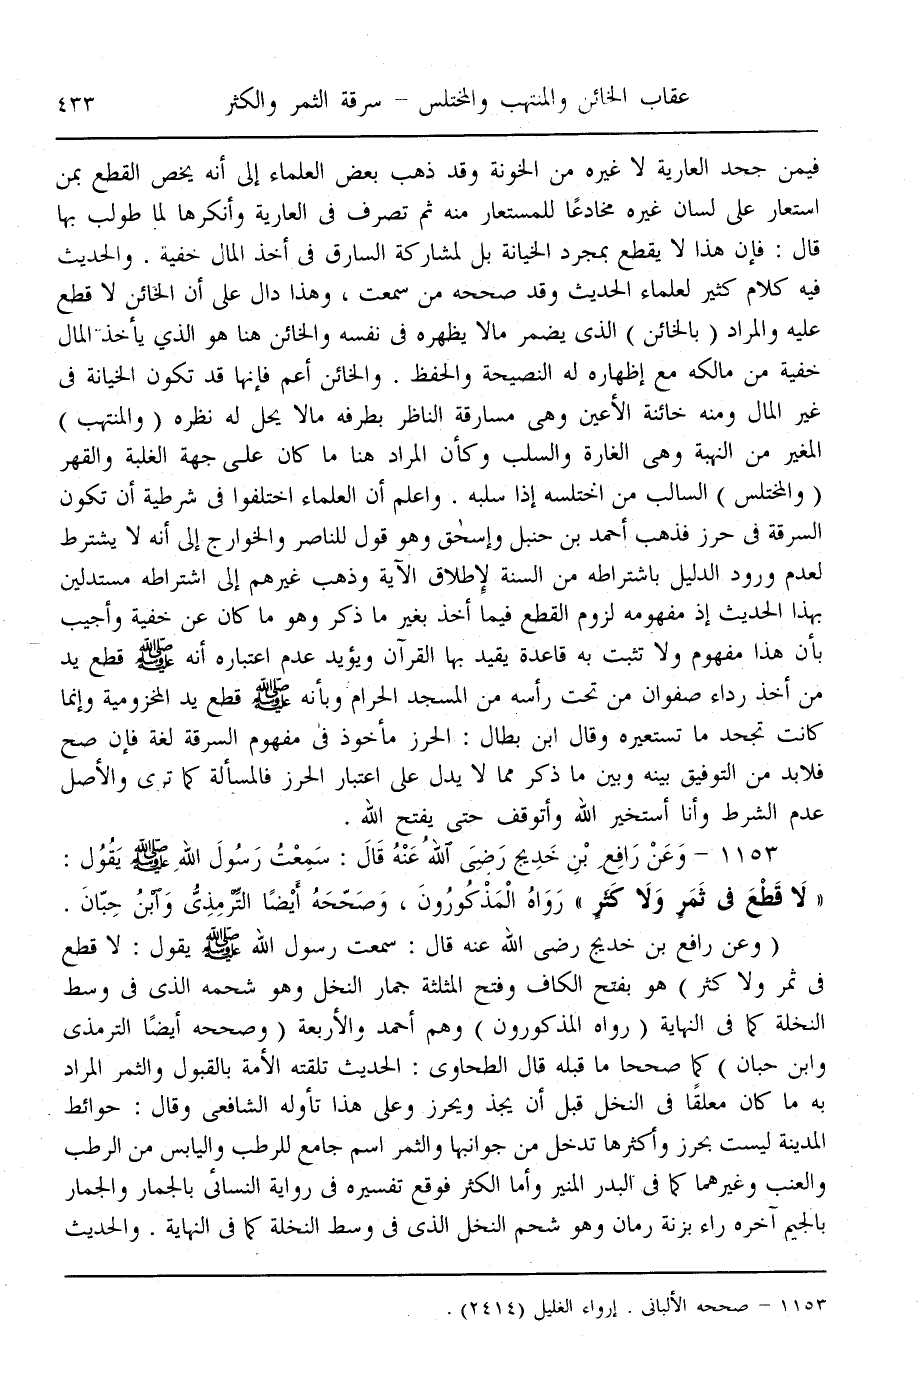 عقاب الخائن والمنتهب والمختلس – سرقة الثمر والكثر ٤٣٣
فيمن جحد العارية لا غيره من الخونة وقد ذهب بعض العلماء إلى أنه يخص القطع بمن
استعار على لسان غيره مخادعًا للمستعار منه ثم تصرف فى العارية وأنكرها لما طولب بها
قال : فإن هذا لا يقطع بمجرد الخيانة بل لمشاركة السارق فى أخذ المال خفية . والحديث
فيه كلام كثير لعلماء الحديث وقد صححه من سمعت ، وهذا دال على أن الخائن لا قطع
عليه والمراد ( بالخائن ) الذى يضمر مالا يظهره فى نفسه والخائن هنا هو الذي يأخذ المال
خفية من مالكه مع إظهاره له النصيحة والحفظ . والخائن أعم فإنها قد تكون الخيانة فى
غير المال ومنه خائنة الأعين وهى مسارقة الناظر بطرفه مالا يحل له نظره ( والمنتهب )
المغير من النهبة وهى الغارة والسلب وكأن المراد هنا ما كان على جهة الغلبة والقهر
( والمختلس ) السالب من اختلسه إذا سلبه . واعلم أن العلماء اختلفوا فى شرطية أن تكون
السرقة فى حرز فذهب أحمد بن حنبل وإسحٰق وهو قول للناصر والخوارج إلى أنه لا يشترط
لعدم ورود الدليل باشتراطه من السنة لإطلاق الآية وذهب غيرهم إلى اشتراطه مستدلين
بهذا الحديث إذ مفهومه لزوم القطع فيما أخذ بغير ما ذكر وهو ما كان عن خفية وأجيب
بأن هذا مفهوم ولا تثبت به قاعدة يقيد بها القرآن ويؤيد عدم اعتباره أنه ﷺ قطع يد
من أخذ رداء صفوان من تحت رأسه من المسجد الحرام وبأنه ﷺ قطع يد المخزومية وإنما
كانت تجحد ما تستعيره وقال ابن بطال : الحرز مأخوذ فى مفهوم السرقة لغة فإن صح
فلابد من التوفيق بينه وبين ما ذكر مما لا يدل على اعتبار الحرز فالمسألة كما ترى والأصل
عدم الشرط وأنا أستخير الله وأتوقف حتى يفتح الله .
١١٥٣ – وَعَنْ رَافِعِ بْنِ خَدِيجٍ رَضِىَ ٱللهُ عَنْهُ قَالَ : سَمِعْتُ رَسُولَ اللهِ ﷺ يَقُولُ :
« لَا قَطْعَ فِى ثَمَرٍ وَلَا كَثَرٍ » رَوَاهُ الْمَذْكُورُونَ ، وَصَحَّحَهُ أَيْضًا التِّرْمِذِىُّ وَٱبْنُ حِبَّانَ .
( وعن رافع بن خديج رضى الله عنه قال : سمعت رسول الله ﷺ يقول : لا قطع
فى ثمر ولا كثر ) هو بفتح الكاف وفتح المثلثة جمار النخل وهو شحمه الذى فى وسط
النخلة كما فى النهاية ( رواه المذكورون ) وهم أحمد والأربعة ( وصححه أيضًا الترمذى
وابن حبان ) كما صححا ما قبله قال الطحاوى : الحديث تلقته الأمة بالقبول والثمر المراد
به ما كان معلقًا فى النخل قبل أن يجذ ويحرز وعلى هذا تأوله الشافعى وقال : حوائط
المدينة ليست بحرز وأكثرها تدخل من جوانبها والثمر اسم جامع للرطب واليابس من الرطب
والعنب وغيرهما كما فى البدر المنير وأما الكثر فوقع تفسيره فى رواية النسائى بالجمار والجمار
بالجيم آخره راء بزنة رمان وهو شحم النخل الذى فى وسط النخلة كما فى النهاية . والحديث
١١٥٣ – صححه الألبانى . إرواء الغليل (٢٤١٤) .